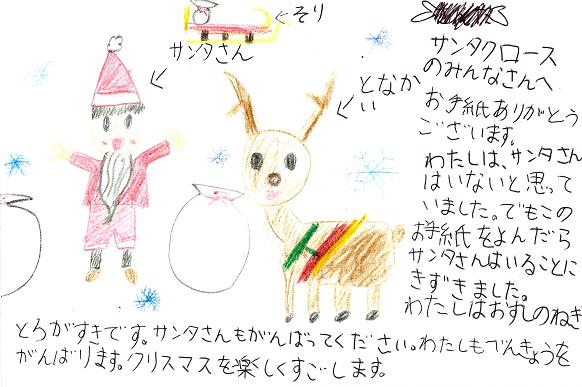 そり
サンタさん
となか
い
サンタクロース
のみんなさんへ
お手紙ありがとう
ございます。
わたしは、サンタさん
はいないと思って
いました。でもこの
お手紙をよんだら
サンタさんはいることに
きずきました。
わたしはおすしのねぎ
とろがすきです。サンタさんもがんばってください。わたしもべんきょうを
がんばります。クリスマスを楽しくすごします。